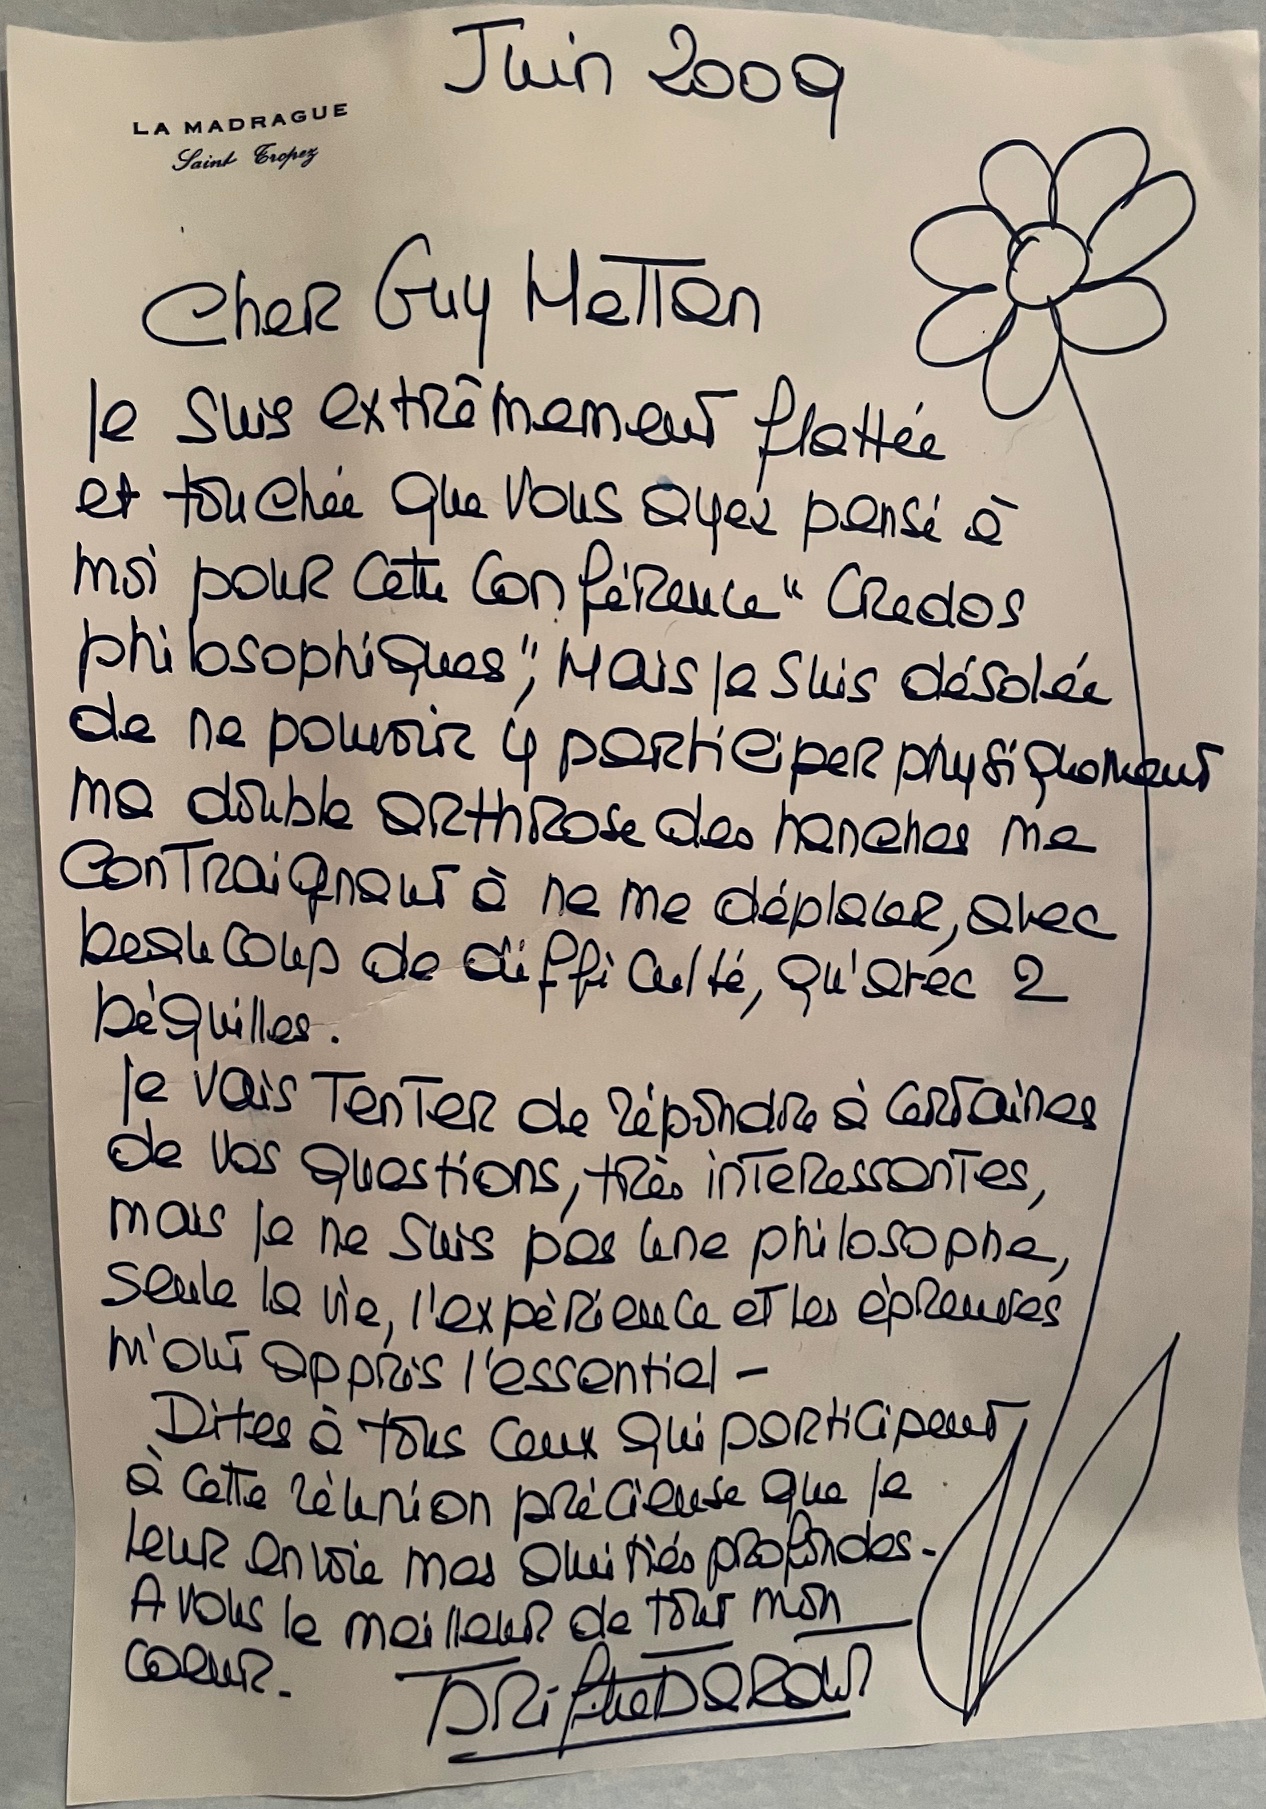 Juin 2009
LA MADRAGUE
Saint Tropez
Cher Guy Mettan
Je suis extrêmement flattée
et touchée que vous ayez pensé à
moi pour cette conférence "Credos
philosophiques", Mais je suis désolée
de ne pouvoir y participer physiquement
ma double arthrose des hanches me
contraignant à ne me déplacer, avec
beaucoup de difficulté, qu'avec 2
béquilles.
Je vais tenter de répondre à certaines
de vos questions, très interessantes,
mais je ne suis pas une philosophe,
seule la vie, l'expèrience et les èpreuves
m'ont appris l'essentiel -
Dites à tous ceux qui participent
à cette réunion précieuse que je
leur envoie mes amitiés profondes -
A vous le meilleur de tout mon
coeur -
Brigitte Bardot